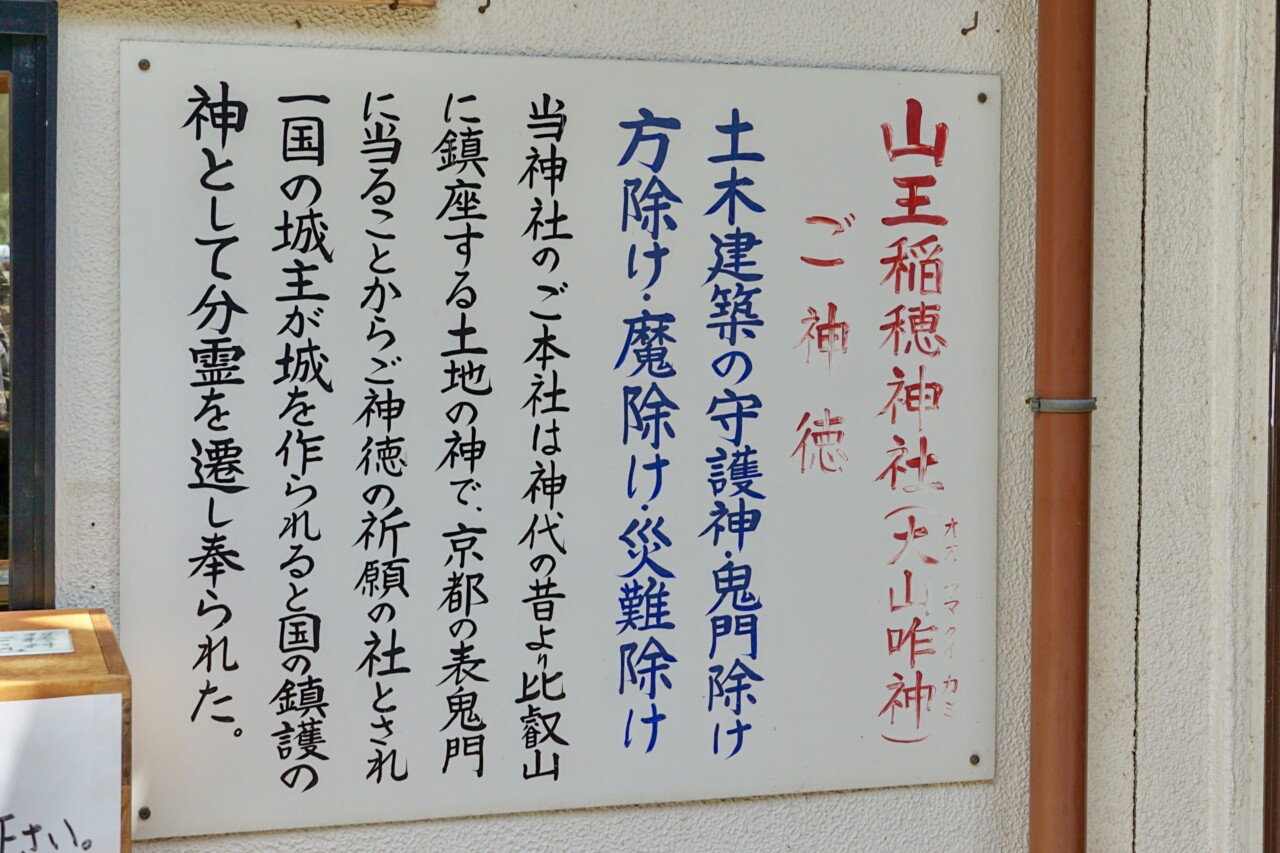 山王稲穂神社(大山咋神)
オオヤマクイカミ
ご神徳
土木建築の守護神・鬼門除け
方除け・魔除け・災難除け
当神社のご本社は神代の昔より比叡山
に鎮座する土地の神で、京都の表鬼門
に当ることからご神徳の祈願の社とされ
一国の城主が城を作られると国の鎮護の
神として分霊を遷し奉られた。
下さい。